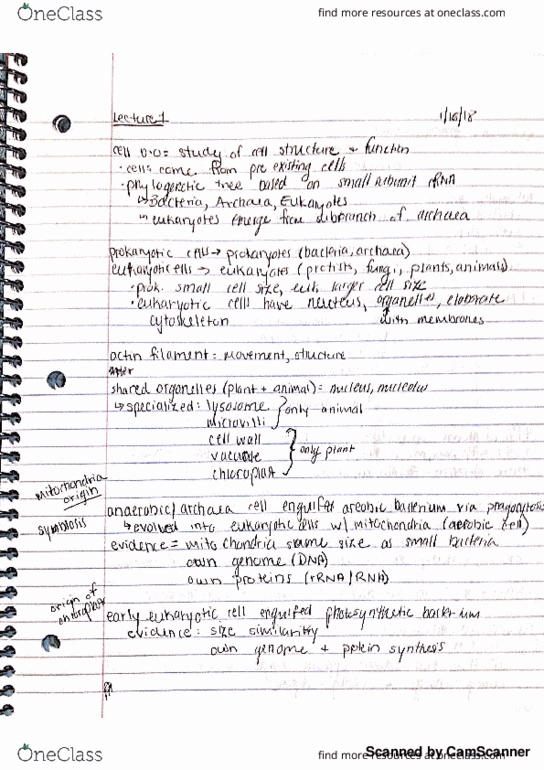 OneClass
find more resources at oneclass.com
Lecture 1 1/16/18
cell bio = study of cell structure + function
• cells come from pre existing cells
• phylogenetic tree based on small subunit rRNA
↳ Bacteria, Archaea, Eukaryotes
↳ eukaryotes emerge from subbranch of archaea
prokaryotic cells → prokaryotes (bacteria, archaea)
eukaryotic cells → eukaryotes (protists, fungi, plants, animals)
• prok. small cell size, euk. larger cell size
• eukaryotic cells have nucleus, organelles, elaborate
cytoskeleton with membranes
actin filament = movement, structure
shared organelles (plant + animal) = nucleus, nucleolus
↳ specialized: lysosome } only animal
microvilli
cell wall
vacuole } only plant
chloroplast
mitochondria
origin
symbiosis
anaerobic/archaea cell engulfes areobic bacterium via phagocytosis
↳ evolved into eukaryotic cells w/ mitochondria (aerobic cell)
evidence = mitochondria same size as small bacteria
own genome (DNA)
own proteins (rRNA/RNA)
origin of
chloroplast
early eukaryotic cell engulfed photosynthetic bacterium
evidence: size similarity
own genome + protein synthesis
OneClass
find more resources at oneclass.com
Scanned by CamScanner